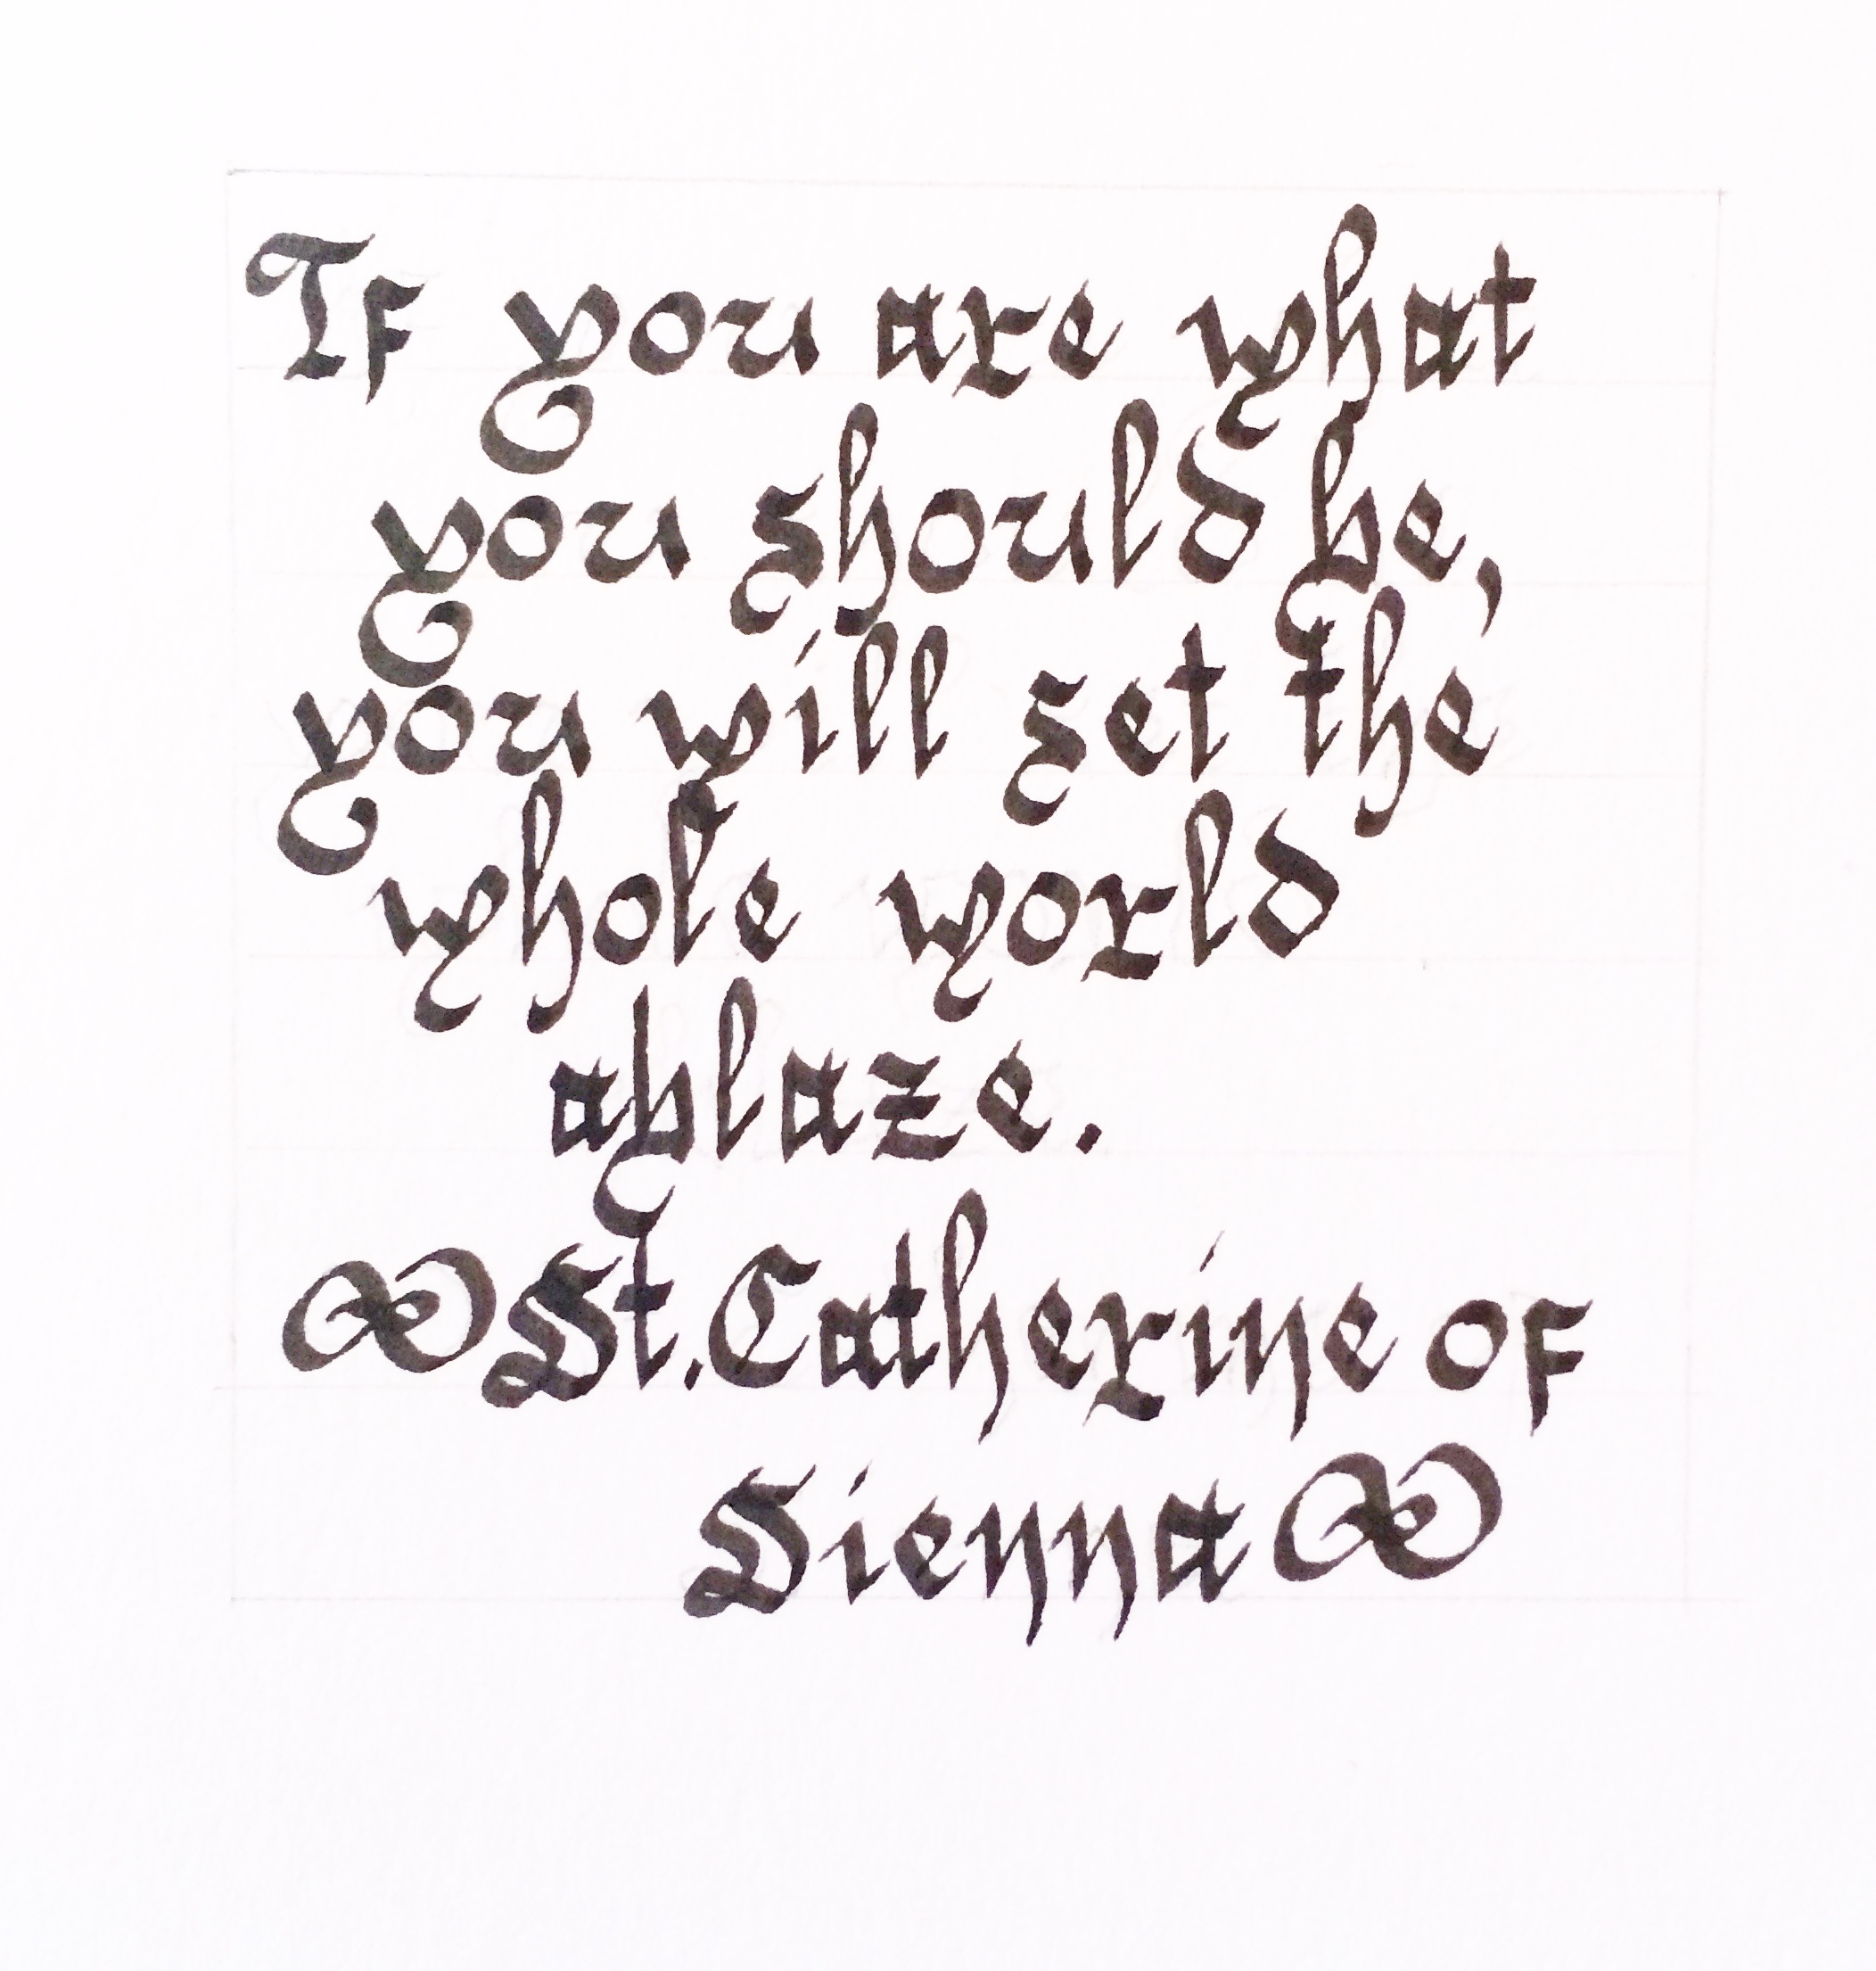 If you are what
you should be,
you will set the
whole world
ablaze.
St. Catherine of
Sienna